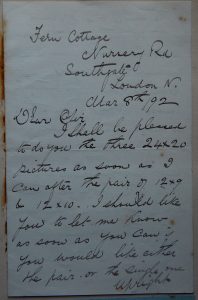 Fern Cottage
Nursery Rd
Southgate
London N.
Mar 8th 92
Dear Sir
I shall be pleased
to do you the three 24x20
pictures as soon as I
can after the pair of 12x9
& 12x10. I should like
you to let me know
as soon as you can if
you would like either
the pair or the single one
Upright